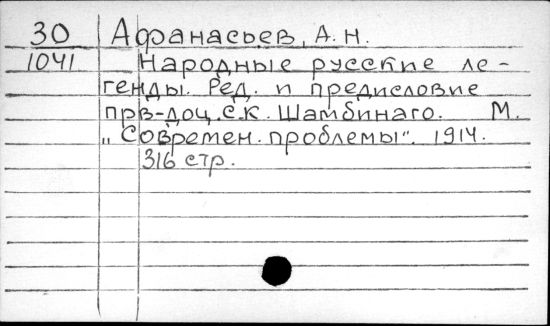 30 Афанасьев, А. Н.
1041 Народные русские ле-
генды. Ред. и предисловие
прв-доц. С.К. Шамбинаго. М.
„Современ. проблемы". 1914.
316 стр.